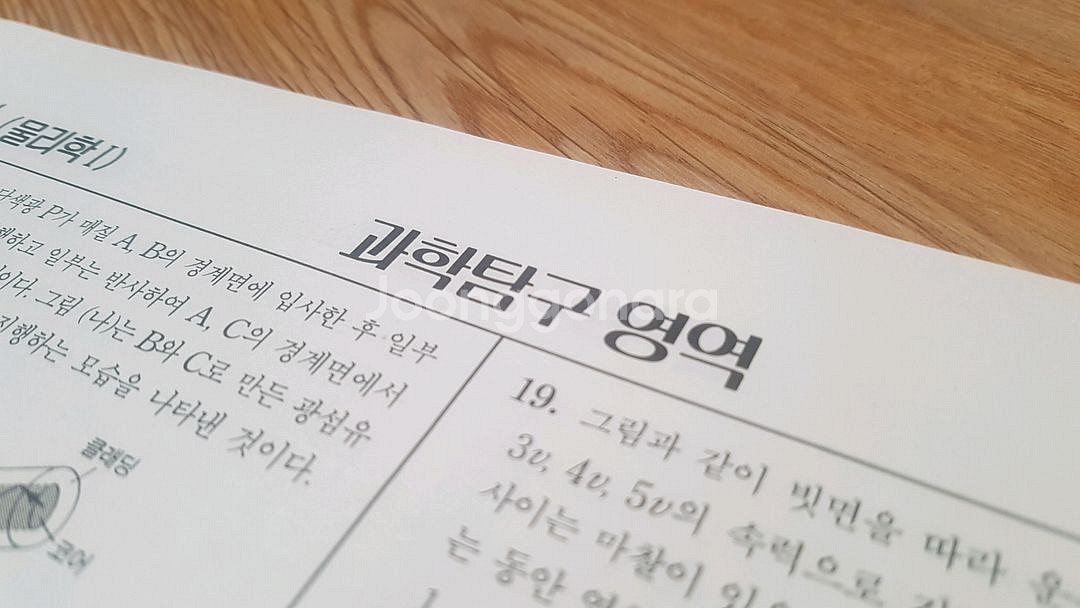 (물리학 I)
과학탐구 영역
단색광 P가 매질 A, B의 경계면에 입사한 후 일부
행하고 일부는 반사하여 A, C의 경계면에서
이다. 그림 (나)는 B와 C로 만든 광섬유
진행하는 모습을 나타낸 것이다.
클래딩
코어
19. 그림과 같이 빗면을 따라 운
3v, 4v, 5v의 속력으로
사이는 마찰이 있
는 동안
Joonggonara